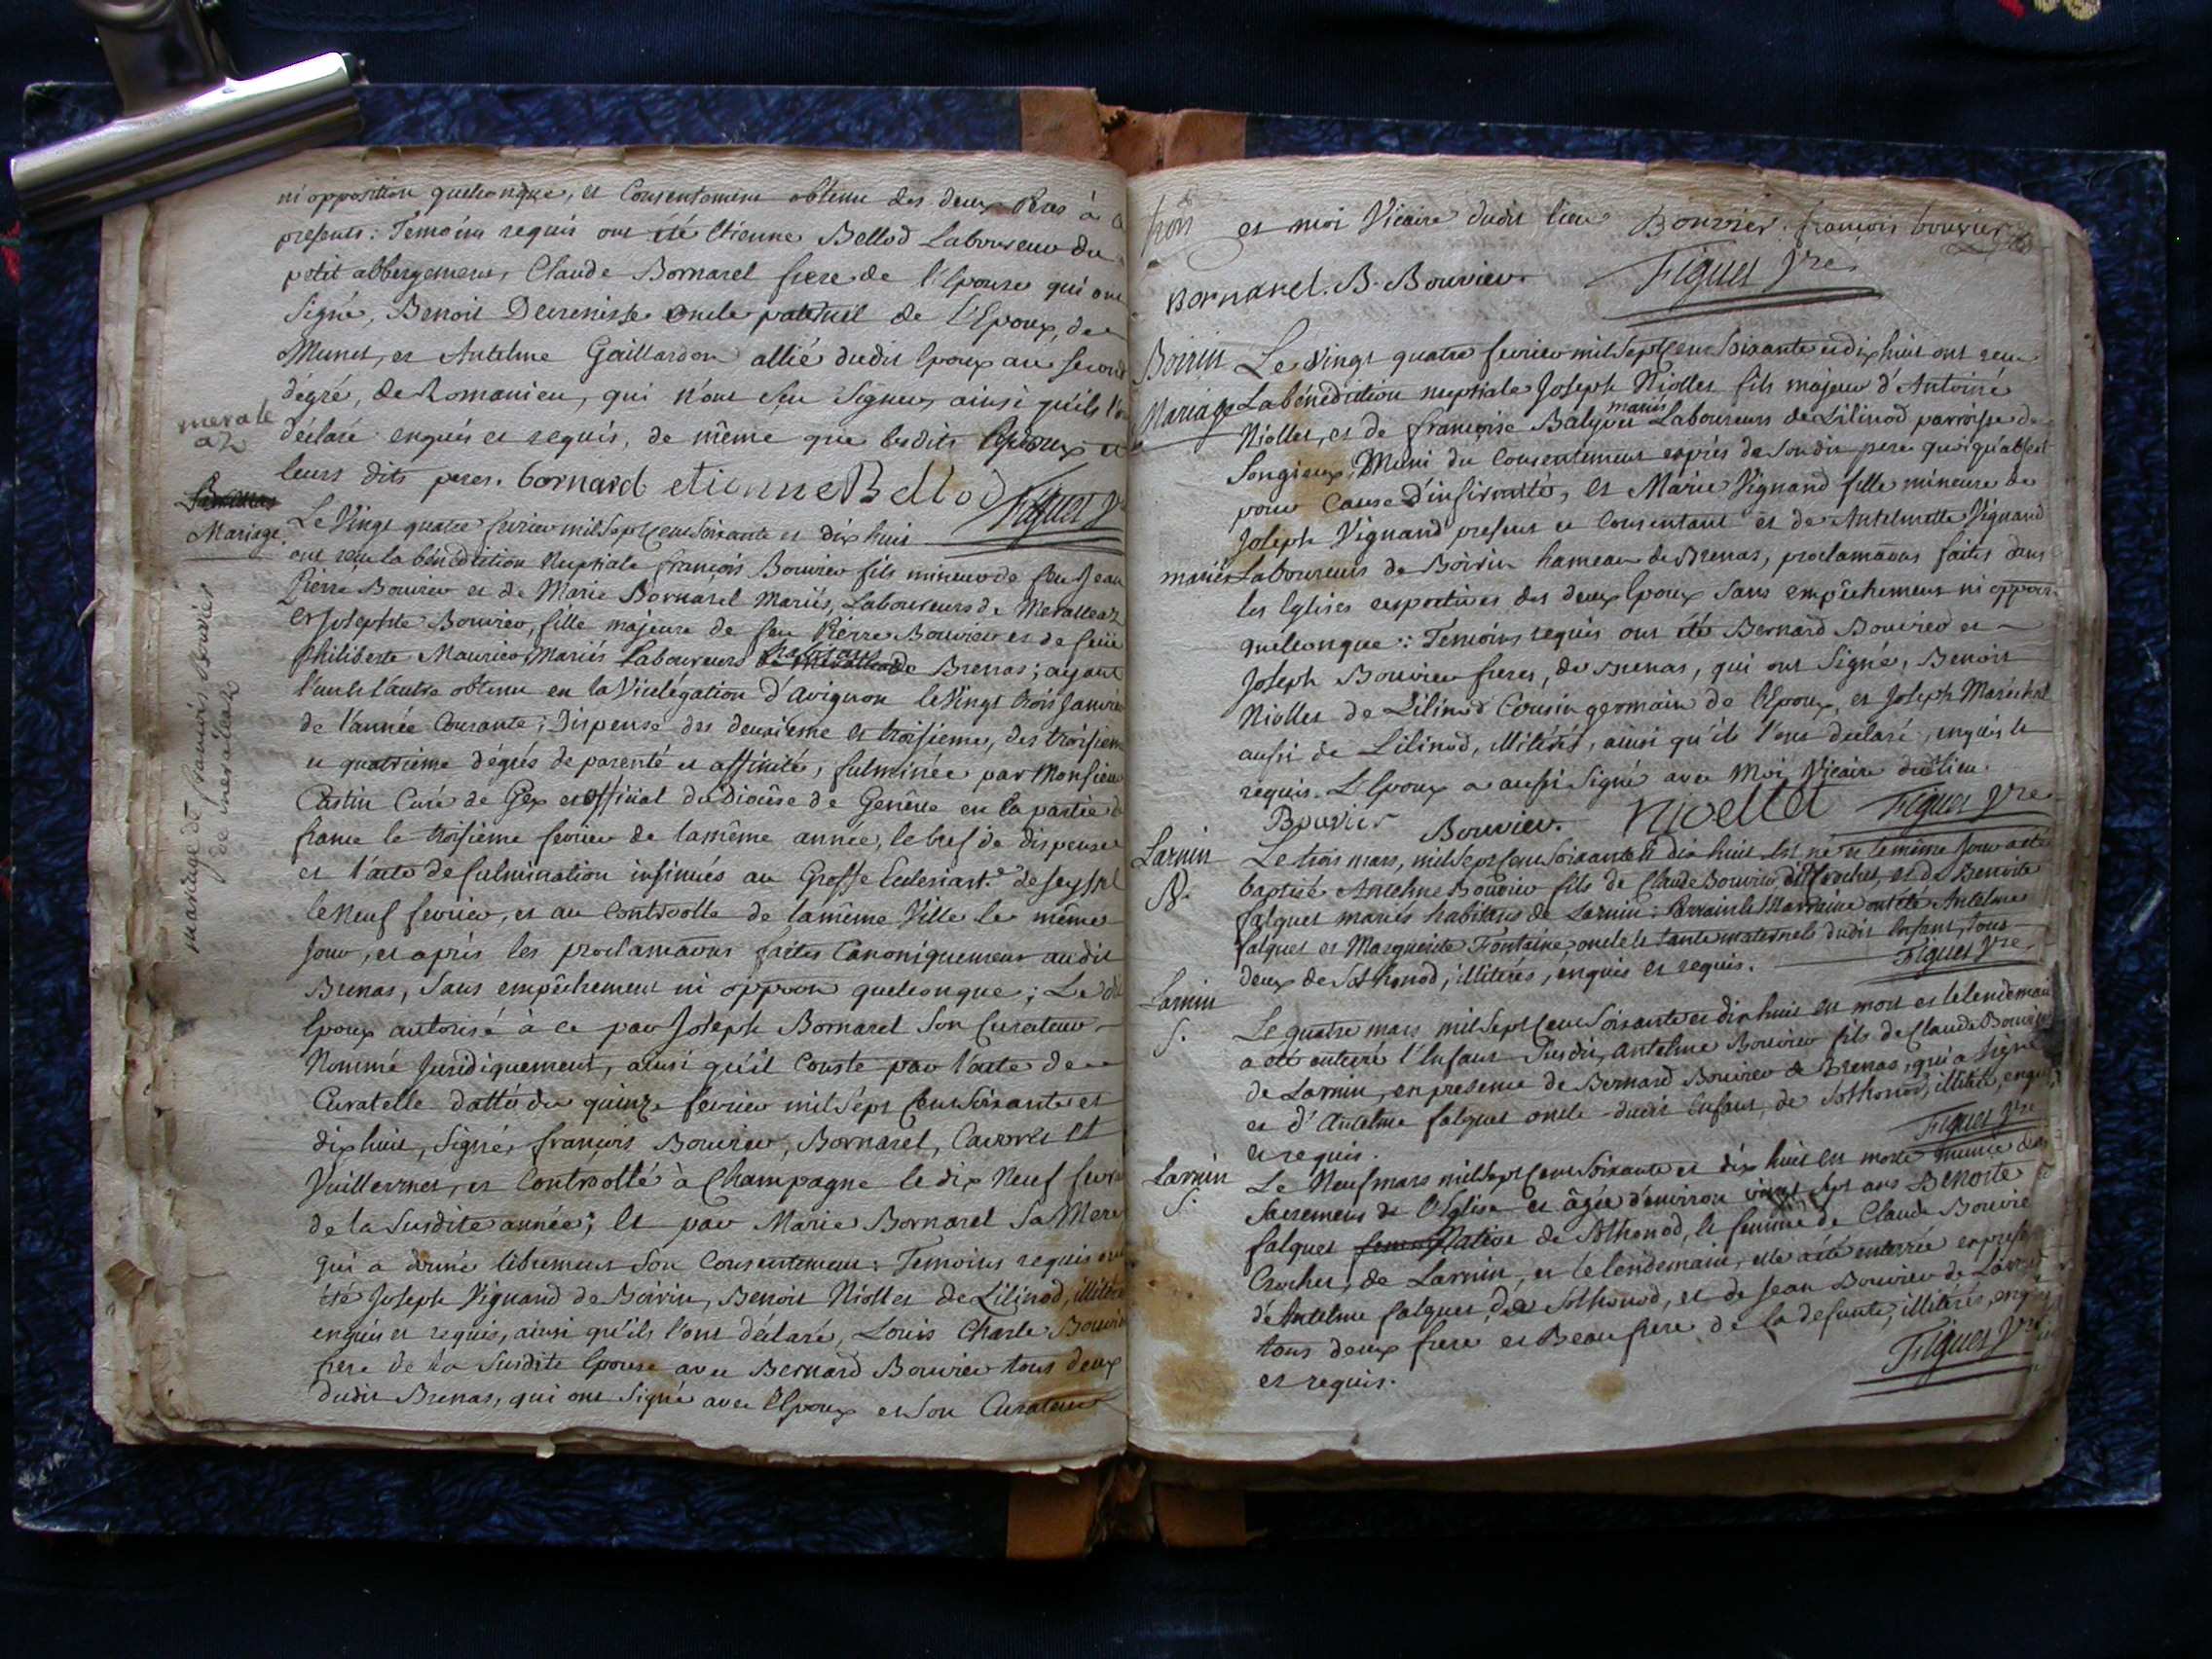 ni opposition quelconque, et Consentement obtenu des deux Peres à ce
presents: Témoins requis ont été Etienne Bellod Laboureur du
petit abbergement, Claude Bornarel frere de l'Epouse qui ont
Signé, Benoit oncle paternel de l'Epoux, de
Munet, et Antelme Gaillardon allié dudit Epoux au second
dégré, de Romanieu, qui n'ont Seu Signer, ainsi qu'ils l'ont
déclaré enquis et requis, de même que lesdits Epoux et
leurs dits peres. bornard etienne Bellod Figuet Vre
meraleaz
Mariage
Le Vingt quatre fevrier mil Sept Cent Soixante et dix huit
ont reçu la bénédiction Nuptiale françois Bouvier fils mineur de feu Jean
Pierre Bouvier et de Marie Bornarel Mariés, Laboureurs de Meralleaz
et Josephte Bouvier, fille majeure de feu Pierre Bouvier et de feüe
philiberte Maurier, Mariés Laboureurs habitans de Brenas; ayant
l'un et l'autre obtenu en la Vicelégation d'avignon le Vingt trois Janvier
de l'année Courante; Dispense des deuxieme et troisieme, des troisieme
et quatrieme dégrés de parenté et affinité, fulminée par Monsieur
Castin Curé de Gex et official du Diocèse de Genêve en la partie de
france le troisieme fevrier de la même année, le bref de dispense
et l'acte de fulmination insinués au Greffe Ecclesiast.e de Seyssel
le Neuf fevrier, et au Controolle de la même Ville le même
Jour, et après les proclamaons faites Canoniquement audit
Brenas, Sans empêchement ni oppoon quelconque; Le dit
Epoux autorisé à ce par Joseph Bornarel Son Curateur
Nommé Juridiquement, ainsi qu'il Conste par l'acte de
Curatelle datté du quinze fevrier mil Sept Cent Soixante et
dix huit, Signé, françois Bouvier, Bornarel, et
Vuillermet, et Controollé à Champagne le dix Neuf fevrier
de la Susdite année; Et par Marie Bornarel Sa Mere
qui a donné librement Son Consentement: Temoins requis ont
été Joseph Vignand de Boirin, Benoit Niollet de Lilinod, illiterés
enquis et requis, ainsi qu'ils l'ont déclaré, Louis Charle Bouvier
frere de la Susdite Epouse avec Bernard Bouvier tous deux
dudit Brenas, qui ont Signé avec l'Epoux et Son Curateur
mariage de françois Bouvier
de meralleaz
et moi Vicaire dudit lieu Bouvier. françois bouvier
Bornarel. B. Bouvier. Figuet Vre
Boirin
Mariage
Le Vingt quatre fevrier mil Sept Cent Soixante et dix huit ont reçu
La bénédiction nuptiale Joseph Niollet fils majeur d'Antoine
Niollet, et de françoise mariés Laboureurs de Lilinod parroisse de
Songieux, Muni du Consentement exprès de Son dit pere quoiqu'absent
pour Cause d'infirmités, Et Marie Vignand fille mineure de
Joseph Vignand present et Consentant et de Antelmette Vignand
mariés Laboureurs de Boirin hameau de Brenas, proclamaons faites dans
les Eglises respectives des deux Epoux Sans empêchement ni oppoon
quelconque: Temoins requis ont été Bernard Bouvier et
Joseph Bouvier freres, de Brenas, qui ont Signé, Benoit
Niollet de Lilinod Cousin germain de l'Epoux, et Joseph Maréchal
aussi de Lilinod, illiterés, ainsi qu'ils l'ont declaré, enquis et
requis. L'Epoux a aussi Signé avec Moi Vicaire dudit lieu.
Bouvier Bouvier. Niollet Figuet Vre
Larnin
B.
Le trois mars, mil Sept Cent Soixante et dix huit Est né et le même Jour a été
baptisé Antelme Bouvier fils de Claude Bouvier dit Crochet, et de Benoite
falquet mariés habitans de Larnin: Parrain et Marraine ont été Antelme
falquet et Marguerite Fontaine, oncle et tante maternels dudit Enfant, tous
deux de Sothonod, illiterés, enquis et requis. Figuet Vre
Larnin
S.
Le quatre mars mil Sept Cent Soixante et dix huit est mort et le lendemain
a été enterré l'Enfant Susdit, Antelme Bouvier fils de Claude Bouvier
de Larnin, en presence de Bernard Bouvier de Brenas, qui a Signé
et d'Antelme falquet oncle dudit Enfant, de Sothonod, illiteré, enquis
et requis. Figuet Vre
Larnin
S.
Le Neuf mars mil Sept Cent Soixante et dix huit est morte munie des
Sacremens de l'Eglise et âgée d'environ vingt sept ans Benoite
falquet Native de Sothonod, et femme de Claude Bouvier
Crochet, de Larnin, et le lendemain, elle a été enterrée en presence
d'Antelme falquet, de Sothonod, et de Jean Bouvier de Larnin
tous deux frere et Beaufrere de la defunte, illiterés, enquis
et requis. Figuet Vre